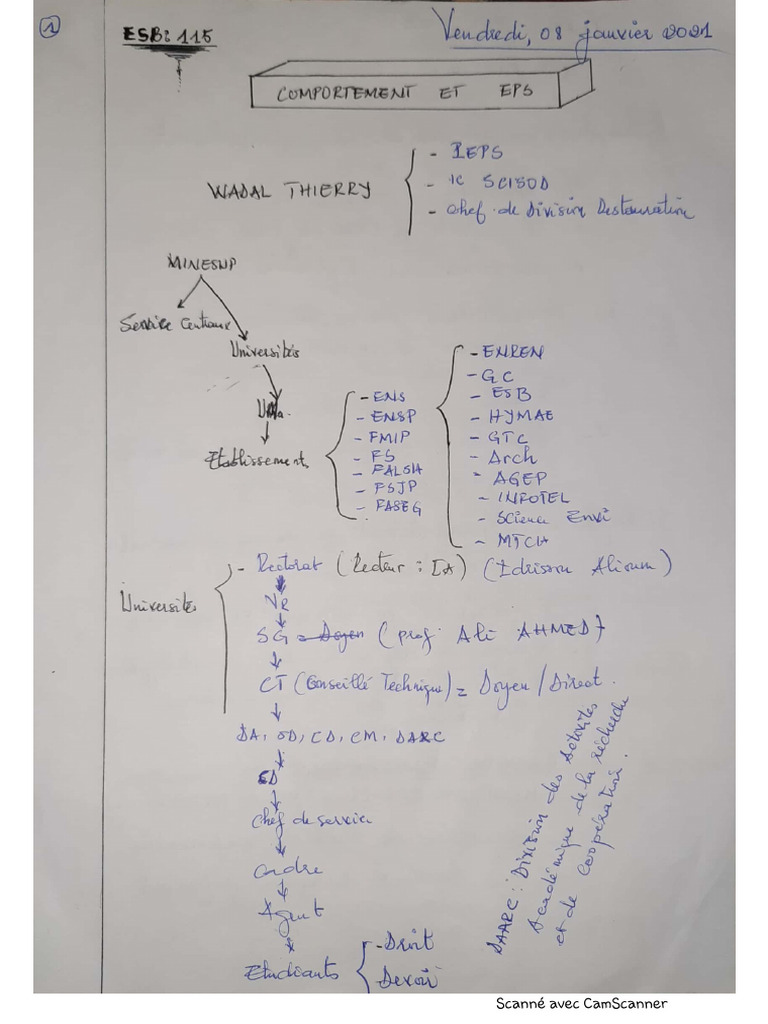 1
ESB: 115
Vendredi, 08 janvier 2021
COMPORTEMENT ET EPS
WADAL THIERRY
- IEPS
- 1c SCISOD
- Chef de Division Restauration
MINESUP
Service Centraux
Universités
UMa.
Etablissement
- ENS
- ENSP
- FMIP
- FS
- FALSH
- FSJP
- FASEG
- ENREN
- GC
- ESB
- HYMAE
- GTC
- Arch
- AGEP
- INFOTEL
- Science Envi
- MTCH
Universités
- Rectorat (Recteur : IA) (Idrissou Alioum)
VR
SG = Doyen (prof Ali AHMED)
CT (Conseillé Technique) = Doyen / Direct.
DA, SD, CD, CM, DARC
CD
Chef de service
Cadre
Agent
Etudiants
- Droit
Devoir
DAARC : Division des Activités
Académique de la recherche
et de coopération.
Scanné avec CamScanner